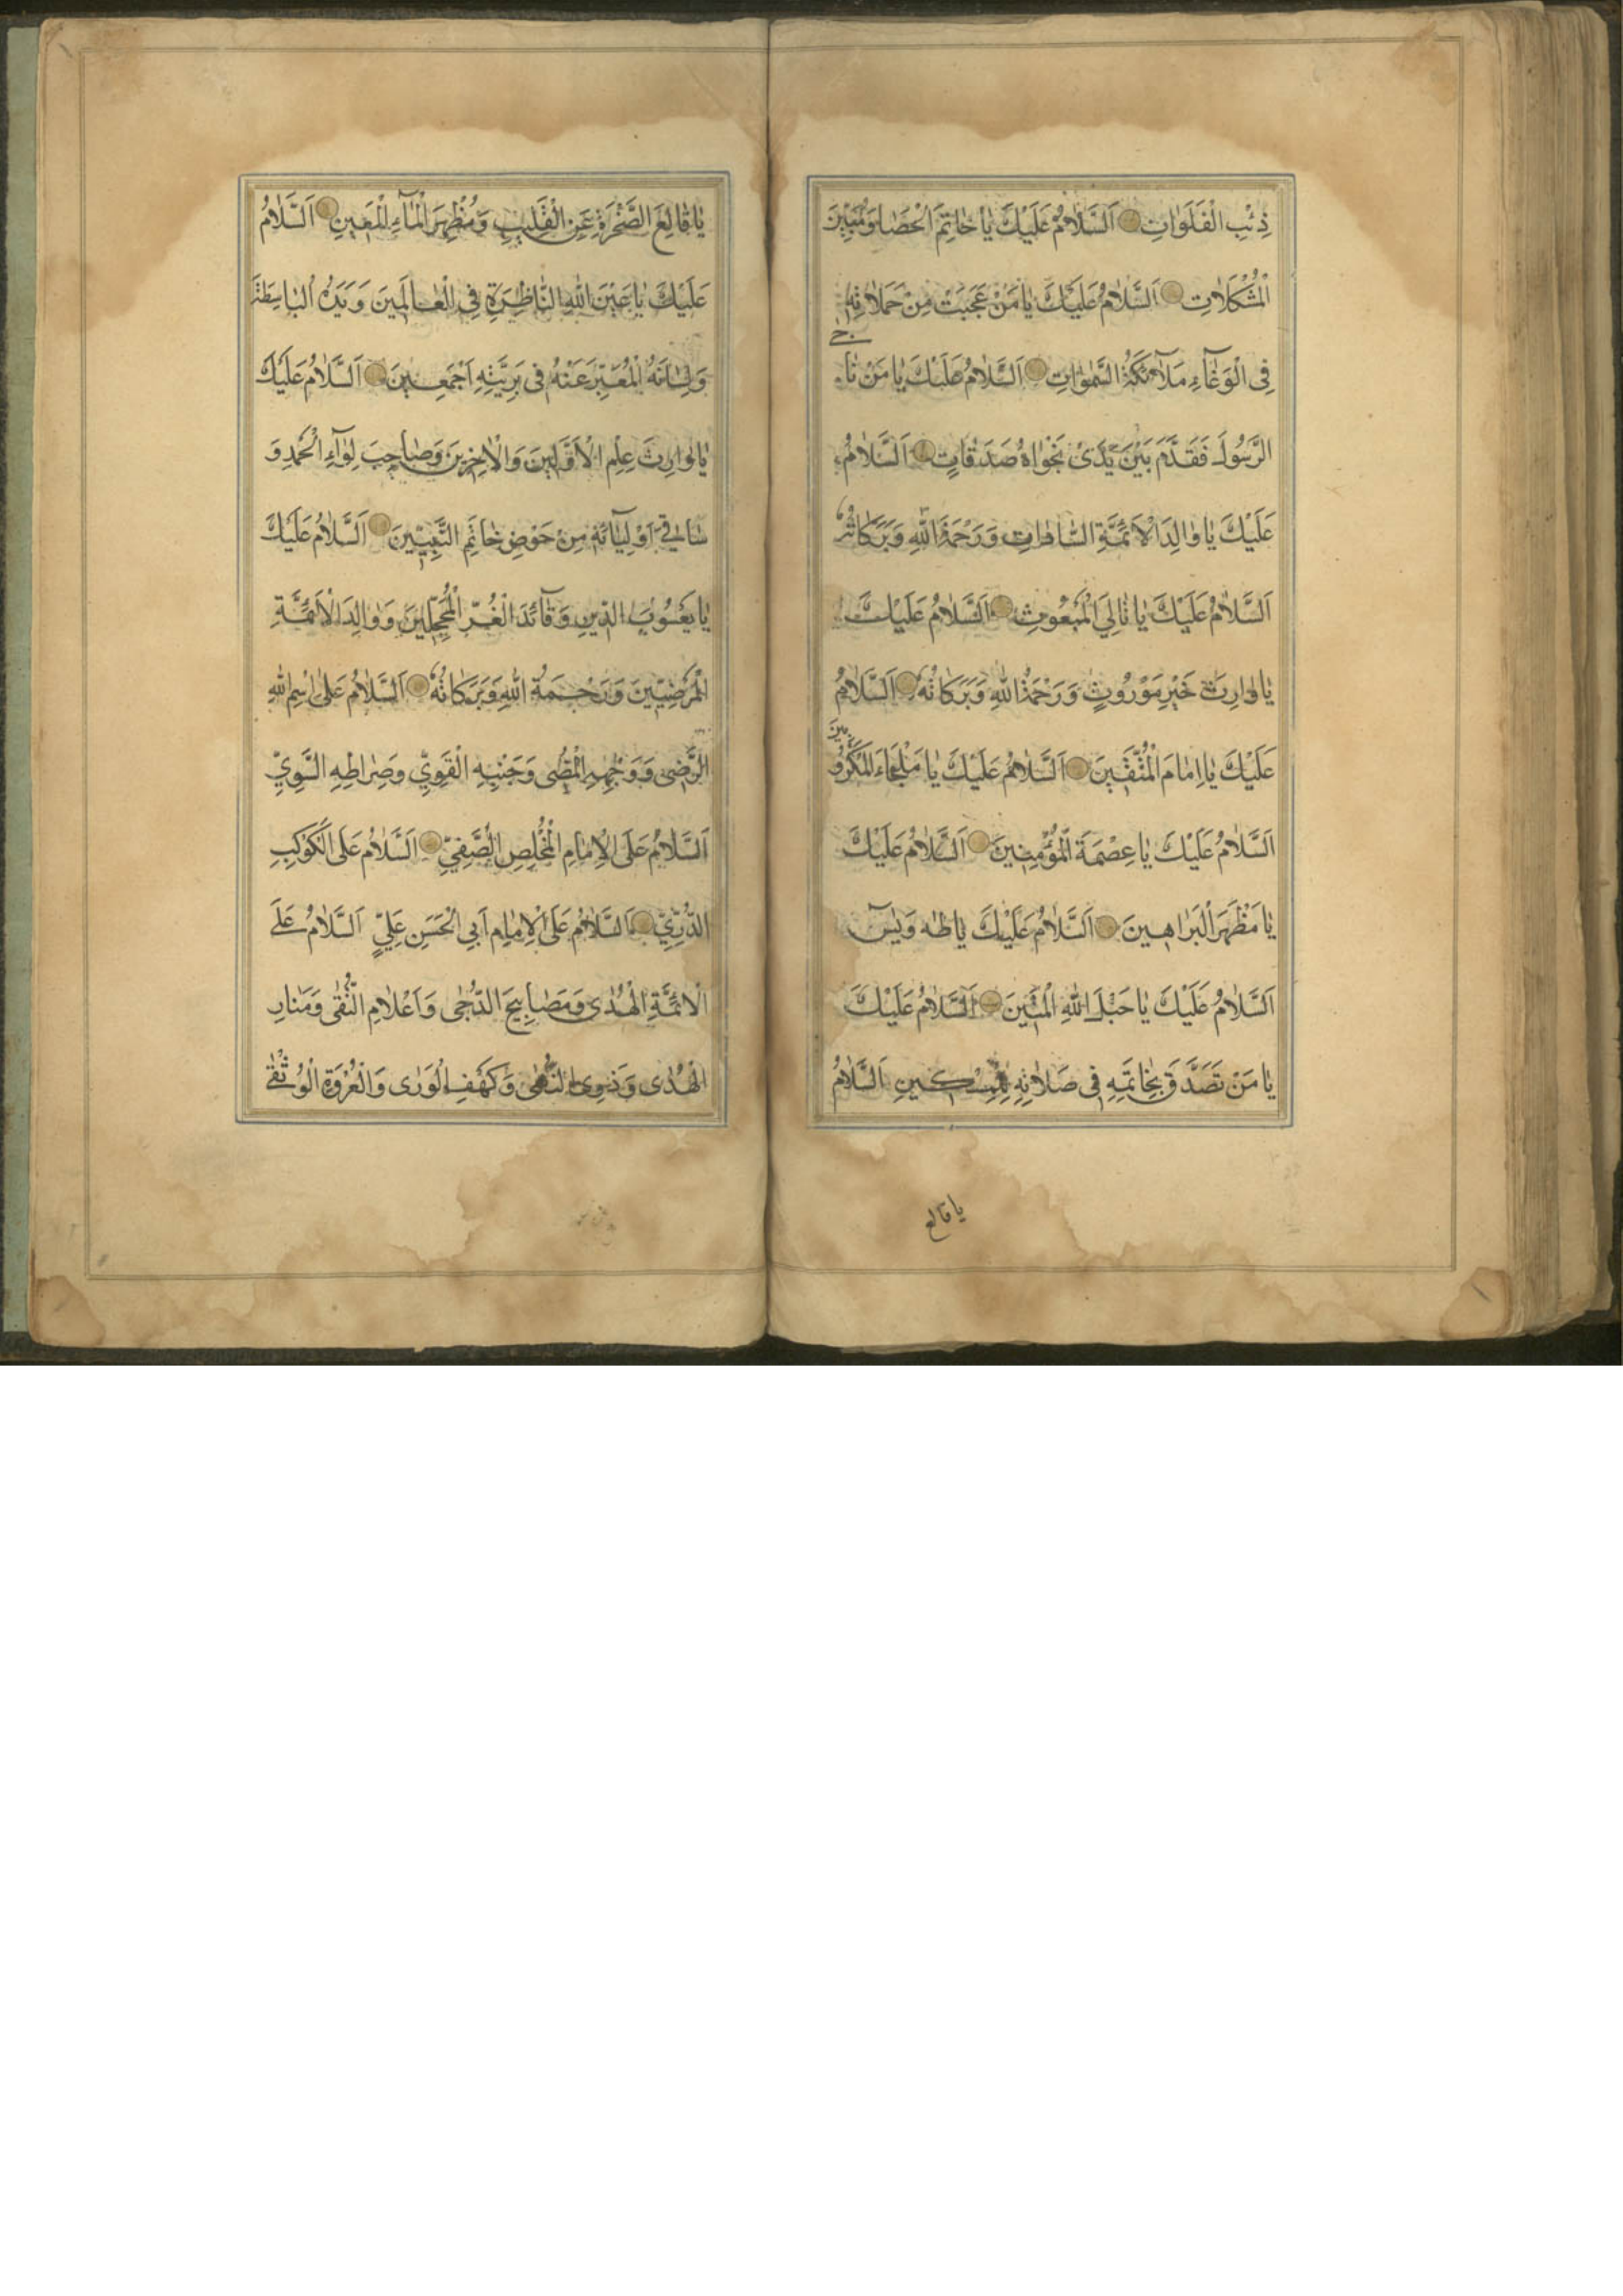 ذِئْبِ الْفَلَوَاتِ اَلسَّلَامُ عَلَيْكَ يَا خَاتِمَ الْحَصَا وَمُبَيِّنَ
الْمُشْكِلَاتِ اَلسَّلَامُ عَلَيْكَ يَا مَنْ عَجِبَتْ مِنْ حَمَلَاتِهِ
فِي الْوَغَآءِ مَلَآئِكَةُ السَّمٰوَاتِ اَلسَّلَامُ عَلَيْكَ يَا مَنْ نَا
جى
الرَّسُولَ فَقَدَّمَ بَيْنَ يَدَىْ نَجْوَاهُ صَدَقَاتٍ اَلسَّلَامُ
عَلَيْكَ يَا وَالِدَ الْاَئِمَّةِ السَّادَاتِ وَرَحْمَةُ اللهِ وَبَرَكَاتُهُ
اَلسَّلَامُ عَلَيْكَ يَا تَالِيَ الْمَبْعُوثِ اَلسَّلَامُ عَلَيْكَ
يَا وَارِثَ خَيْرِ مَوْرُوثٍ وَرَحْمَةُ اللهِ وَبَرَكَاتُهُ اَلسَّلَامُ
عَلَيْكَ يَا اِمَامَ الْمُتَّقِينَ اَلسَّلَامُ عَلَيْكَ يَا مَلْجَاءَ الْمَكْرُو
بينَ
اَلسَّلَامُ عَلَيْكَ يَا عِصْمَةَ الْمُؤْمِنِينَ اَلسَّلَامُ عَلَيْكَ
يَا مَظْهَرَ الْبَرَاهِينَ اَلسَّلَامُ عَلَيْكَ يَا طٰهٰ وَيٰسٓ
اَلسَّلَامُ عَلَيْكَ يَا حَبْلَ اللهِ الْمَتِينَ اَلسَّلَامُ عَلَيْكَ
يَا مَنْ تَصَدَّقَ بِخَاتَمِهِ فِي صَلَاتِهِ لِلْمِسْكِينِ اَلسَّلَامُ
يا قالع
يَا قَالِعَ الصَّخْرَةِ عَنِ الْقَلِيبِ وَمُظْهِرَ الْمَآءِ الْمَعِينِ اَلسَّلَامُ
عَلَيْكَ يَا عَيْنَ اللهِ النَّاظِرَةِ فِي الْعَالَمِينَ وَيَدَهُ الْبَاسِطَةَ
وَلِسَانَهُ الْمُعَبِّرَ عَنْهُ فِي بَرِيَّتِهِ اَجْمَعِينَ اَلسَّلَامُ عَلَيْكَ
يَا وَارِثَ عِلْمِ الْاَوَّلِينَ وَالْاٰخِرِينَ وَصَاحِبَ لِوَآءِ الْحَمْدِ وَ
سَاقِيَ اَوْلِيَآئِهِ مِنْ حَوْضِ خَاتَمِ النَّبِيِّينَ اَلسَّلَامُ عَلَيْكَ
يَا يَعْسُوبَ الدِّينِ وَقَآئِدَ الْغُرِّ الْمُحَجَّلِينَ وَوَالِدَ الْاَئِمَّةِ
الْمَرْضِيِّينَ وَرَحْمَةُ اللهِ وَبَرَكَاتُهُ اَلسَّلَامُ عَلَى اسْمِ اللهِ
الرَّضِي وَوَجْهِهِ الْمُضِيءِ وَجَنْبِهِ الْقَوِيِّ وَصِرَاطِهِ السَّوِيِّ
اَلسَّلَامُ عَلَى الْاِمَامِ الْمُخْلِصِ الصَّفِيِّ اَلسَّلَامُ عَلَى الْكَوْكَبِ
الدُّرِّيِّ اَلسَّلَامُ عَلَى الْاِمَامِ اَبِي الْحَسَنِ عَلِيٍّ اَلسَّلَامُ عَلَى
الْاَئِمَّةِ الْهُدٰى وَمَصَابِيحَ الدُّجٰى وَاَعْلَامِ التُّقٰى وَمَنَارِ
الْهُدٰى وَذَوِى النُّهٰى وَكَهْفِ الْوَرٰى وَالْعُرْوَةِ الْوُثْقٰى